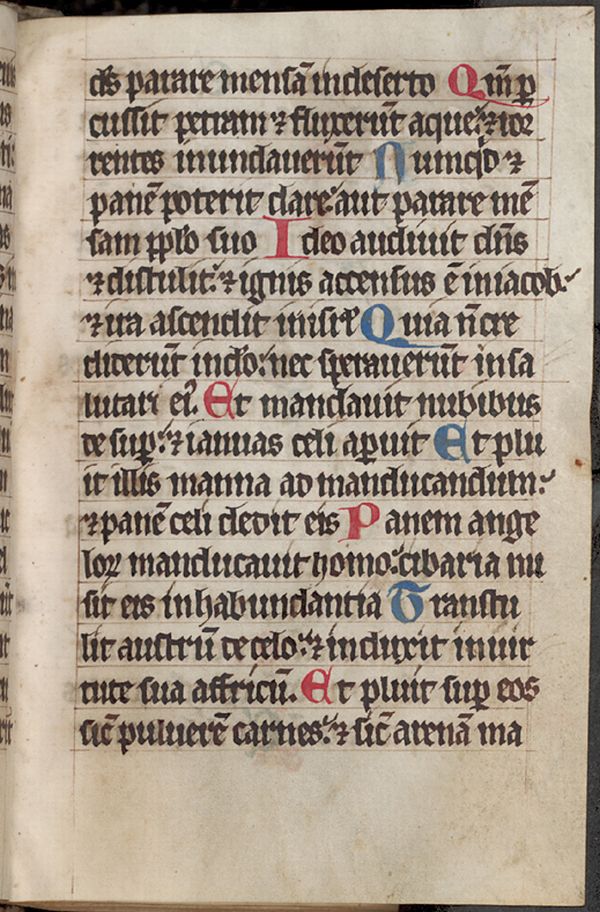 ds parare mensā in deserto Qm̄ ꝑ
cussit petram ⁊ fluxerūt aque: ⁊ tor
rentes inundauerūt Numqd ⁊
panē poterit dare: aut parare mē
sam pplo suo Ideo audiuit dn̄s
⁊ distulit: ⁊ ignis accensus ē in iacob:
⁊ ira ascendit in isrl Quia n̄ cre
diderūt in do: nec sperauerūt in sa
lutari ei. Et mandauit nubibus
desuꝑ: ⁊ ianuas celi aꝑuit Et plu
it illis manna ad manducandum:
⁊ panē celi dedit eis Panem ange
loꝝ manducauit homo: cibaria mi
sit eis in habundantia Transtu
lit austrū de celo: ⁊ induxit in uir
tute sua affricū. Et pluit suꝑ eos
sic̄ puluerē carnes: ⁊ sic̄ arenā ma